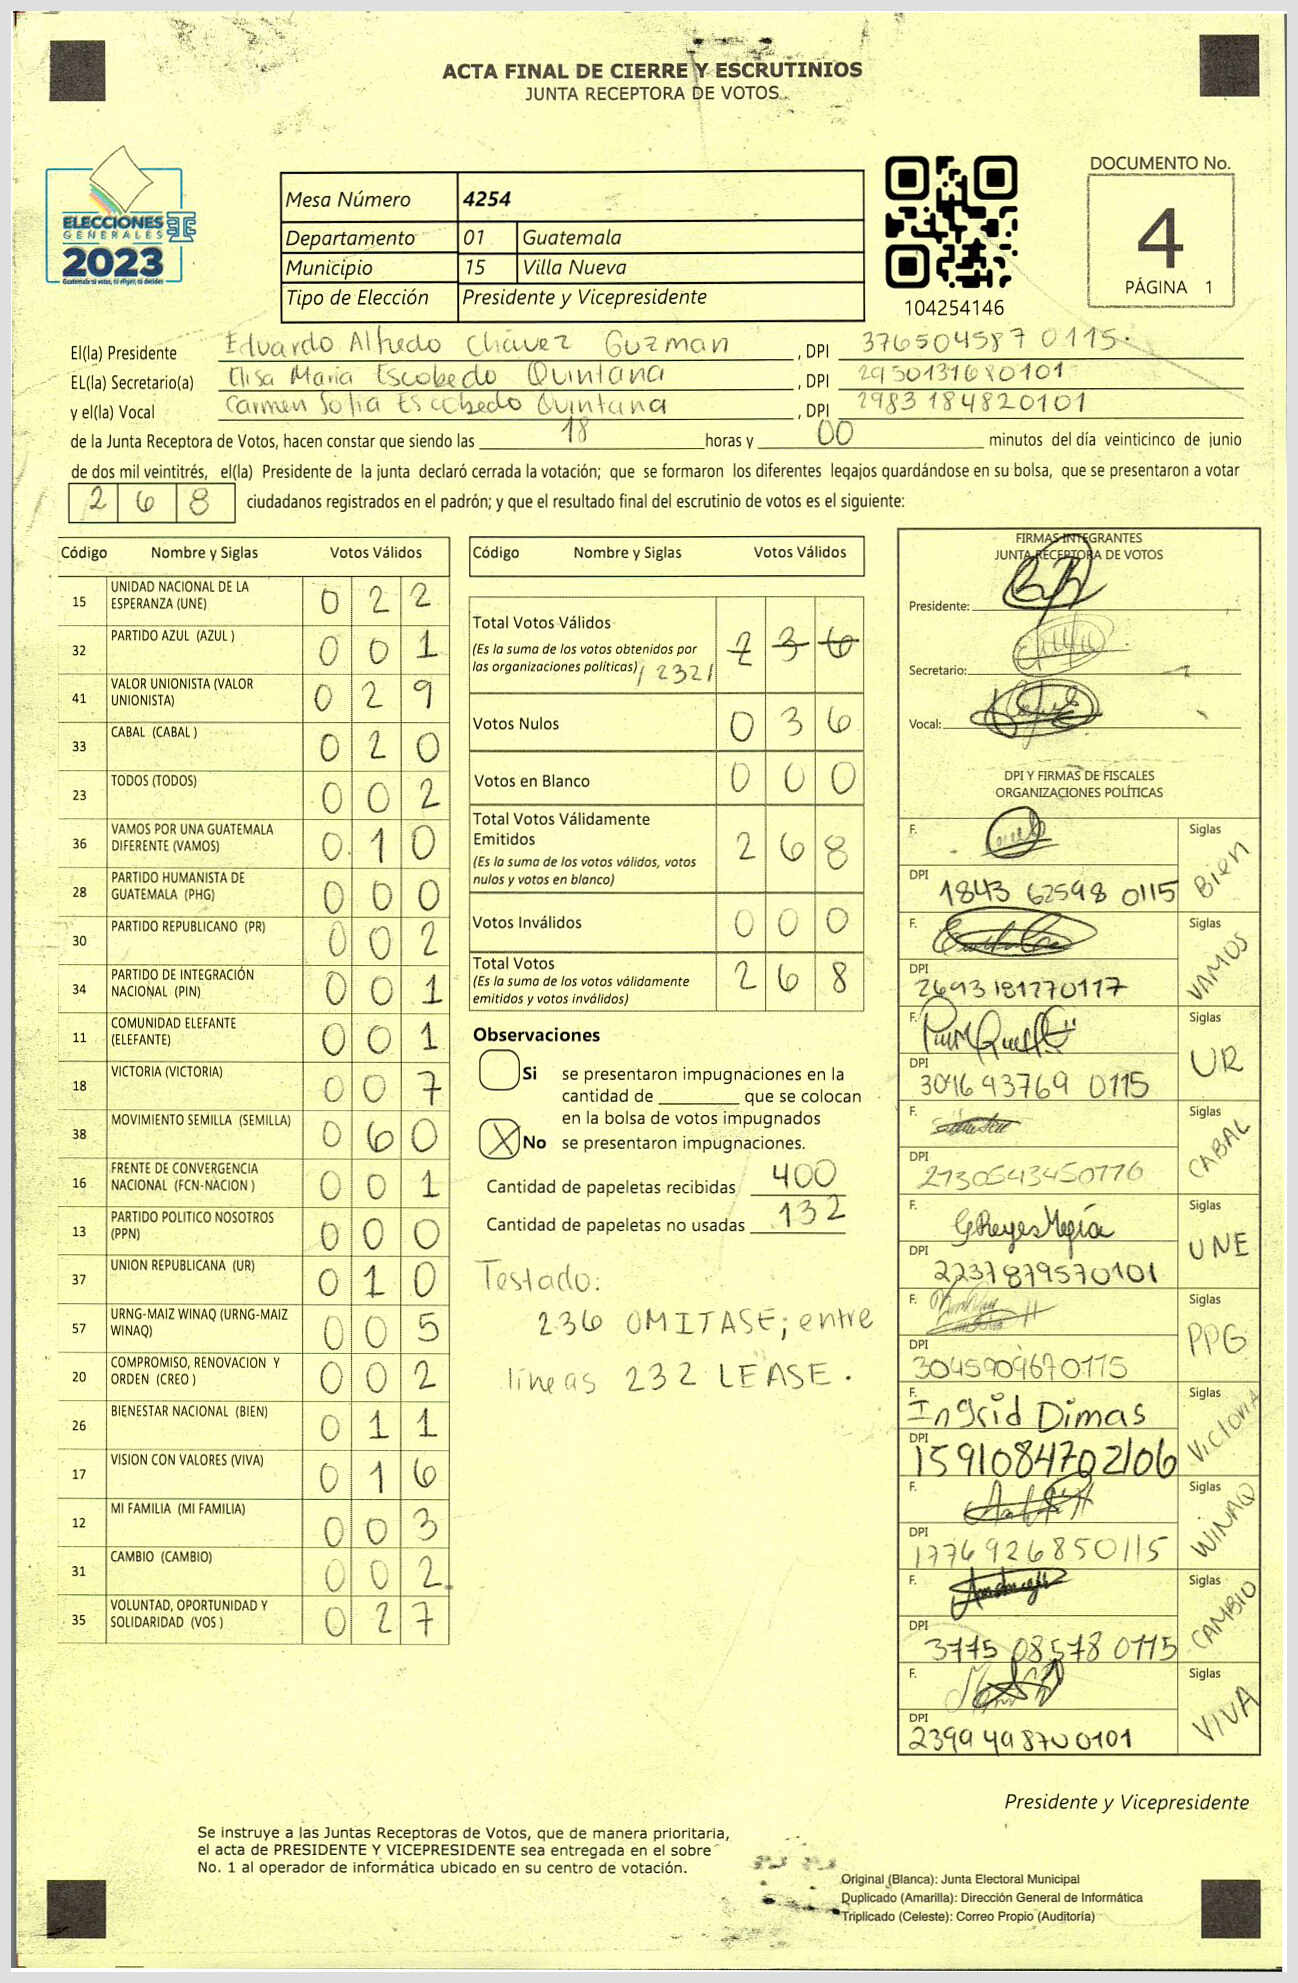 ACTA FINAL DE CIERRE Y ESCRUTINIOS
JUNTA RECEPTORA DE VOTOS
ELECCIONES
GENERALES
2023
Guatemala tú votas, tú eliges, tú decides
Mesa Número 4254
Departamento 01 Guatemala
Municipio 15 Villa Nueva
Tipo de Elección Presidente y Vicepresidente
104254146
DOCUMENTO No.
4
PÁGINA 1
El(la) Presidente Eduardo Alfredo Chávez Guzman , DPI 376504587 0115.
EL(la) Secretario(a) Elisa María Escobedo Quintana , DPI 2950131680101
y el(la) Vocal Carmen Sofía Escobedo Quintana , DPI 2983184820101
de la Junta Receptora de Votos, hacen constar que siendo las 18 horas y 00 minutos del día veinticinco de junio
de dos mil veintitrés, el(la) Presidente de la junta declaró cerrada la votación; que se formaron los diferentes legajos guardándose en su bolsa, que se presentaron a votar
268 ciudadanos registrados en el padrón; y que el resultado final del escrutinio de votos es el siguiente:
Código Nombre y Siglas Votos Válidos
15 UNIDAD NACIONAL DE LA ESPERANZA (UNE) 0 2 2
32 PARTIDO AZUL (AZUL ) 0 0 1
41 VALOR UNIONISTA (VALOR UNIONISTA) 0 2 9
33 CABAL (CABAL ) 0 2 0
23 TODOS (TODOS) 0 0 2
36 VAMOS POR UNA GUATEMALA DIFERENTE (VAMOS) 0 1 0
28 PARTIDO HUMANISTA DE GUATEMALA (PHG) 0 0 0
30 PARTIDO REPUBLICANO (PR) 0 0 2
34 PARTIDO DE INTEGRACIÓN NACIONAL (PIN) 0 0 1
11 COMUNIDAD ELEFANTE (ELEFANTE) 0 0 1
18 VICTORIA (VICTORIA) 0 0 7
38 MOVIMIENTO SEMILLA (SEMILLA) 0 6 0
16 FRENTE DE CONVERGENCIA NACIONAL (FCN-NACION ) 0 0 1
13 PARTIDO POLITICO NOSOTROS (PPN) 0 0 0
37 UNION REPUBLICANA (UR) 0 1 0
57 URNG-MAIZ WINAQ (URNG-MAIZ WINAQ) 0 0 5
20 COMPROMISO, RENOVACION Y ORDEN (CREO ) 0 0 2
26 BIENESTAR NACIONAL (BIEN) 0 1 1
17 VISION CON VALORES (VIVA) 0 1 6
12 MI FAMILIA (MI FAMILIA) 0 0 3
31 CAMBIO (CAMBIO) 0 0 2
35 VOLUNTAD, OPORTUNIDAD Y SOLIDARIDAD (VOS ) 0 2 7
Código Nombre y Siglas Votos Válidos
Total Votos Válidos 2 3 6
(Es la suma de los votos obtenidos por
las organizaciones políticas) / 232 /
Votos Nulos 0 3 6
Votos en Blanco 0 0 0
Total Votos Válidamente
Emitidos 2 6 8
(Es la suma de los votos válidos, votos
nulos y votos en blanco)
Votos Inválidos 0 0 0
Total Votos 2 6 8
(Es la suma de los votos válidamente
emitidos y votos inválidos)
Observaciones
Si se presentaron impugnaciones en la
cantidad de ________ que se colocan
en la bolsa de votos impugnados
X No se presentaron impugnaciones.
Cantidad de papeletas recibidas 400
Cantidad de papeletas no usadas 132
Testado:
236 OMITASE; entre
líneas 232 LEASE.
FIRMAS INTEGRANTES
JUNTA RECEPTORA DE VOTOS
Presidente:
Secretario:
Vocal:
DPI Y FIRMAS DE FISCALES
ORGANIZACIONES POLÍTICAS
F. Siglas Bien
DPI 1843 62598 0115
F. Siglas VAMOS
DPI 2693181770117
F. Siglas UR
DPI 3046 43769 0115
F. Siglas CABAL
DPI 2730543450776
F. GReyesMejía Siglas UNE
DPI 2237879570101
F. Siglas PPG
DPI 3045909670115
F. Ingrid Dimas Siglas Victoria
DPI 1591084702106
F. Siglas WINAQ
DPI 1776926850115
F. Siglas CAMBIO
DPI 3775 08578 0115
F. Siglas VIVA
DPI 2399498700101
Presidente y Vicepresidente
Se instruye a las Juntas Receptoras de Votos, que de manera prioritaria,
el acta de PRESIDENTE Y VICEPRESIDENTE sea entregada en el sobre
No. 1 al operador de informática ubicado en su centro de votación.
Original (Blanca): Junta Electoral Municipal
Duplicado (Amarilla): Dirección General de Informática
Triplicado (Celeste): Correo Propio (Auditoría)